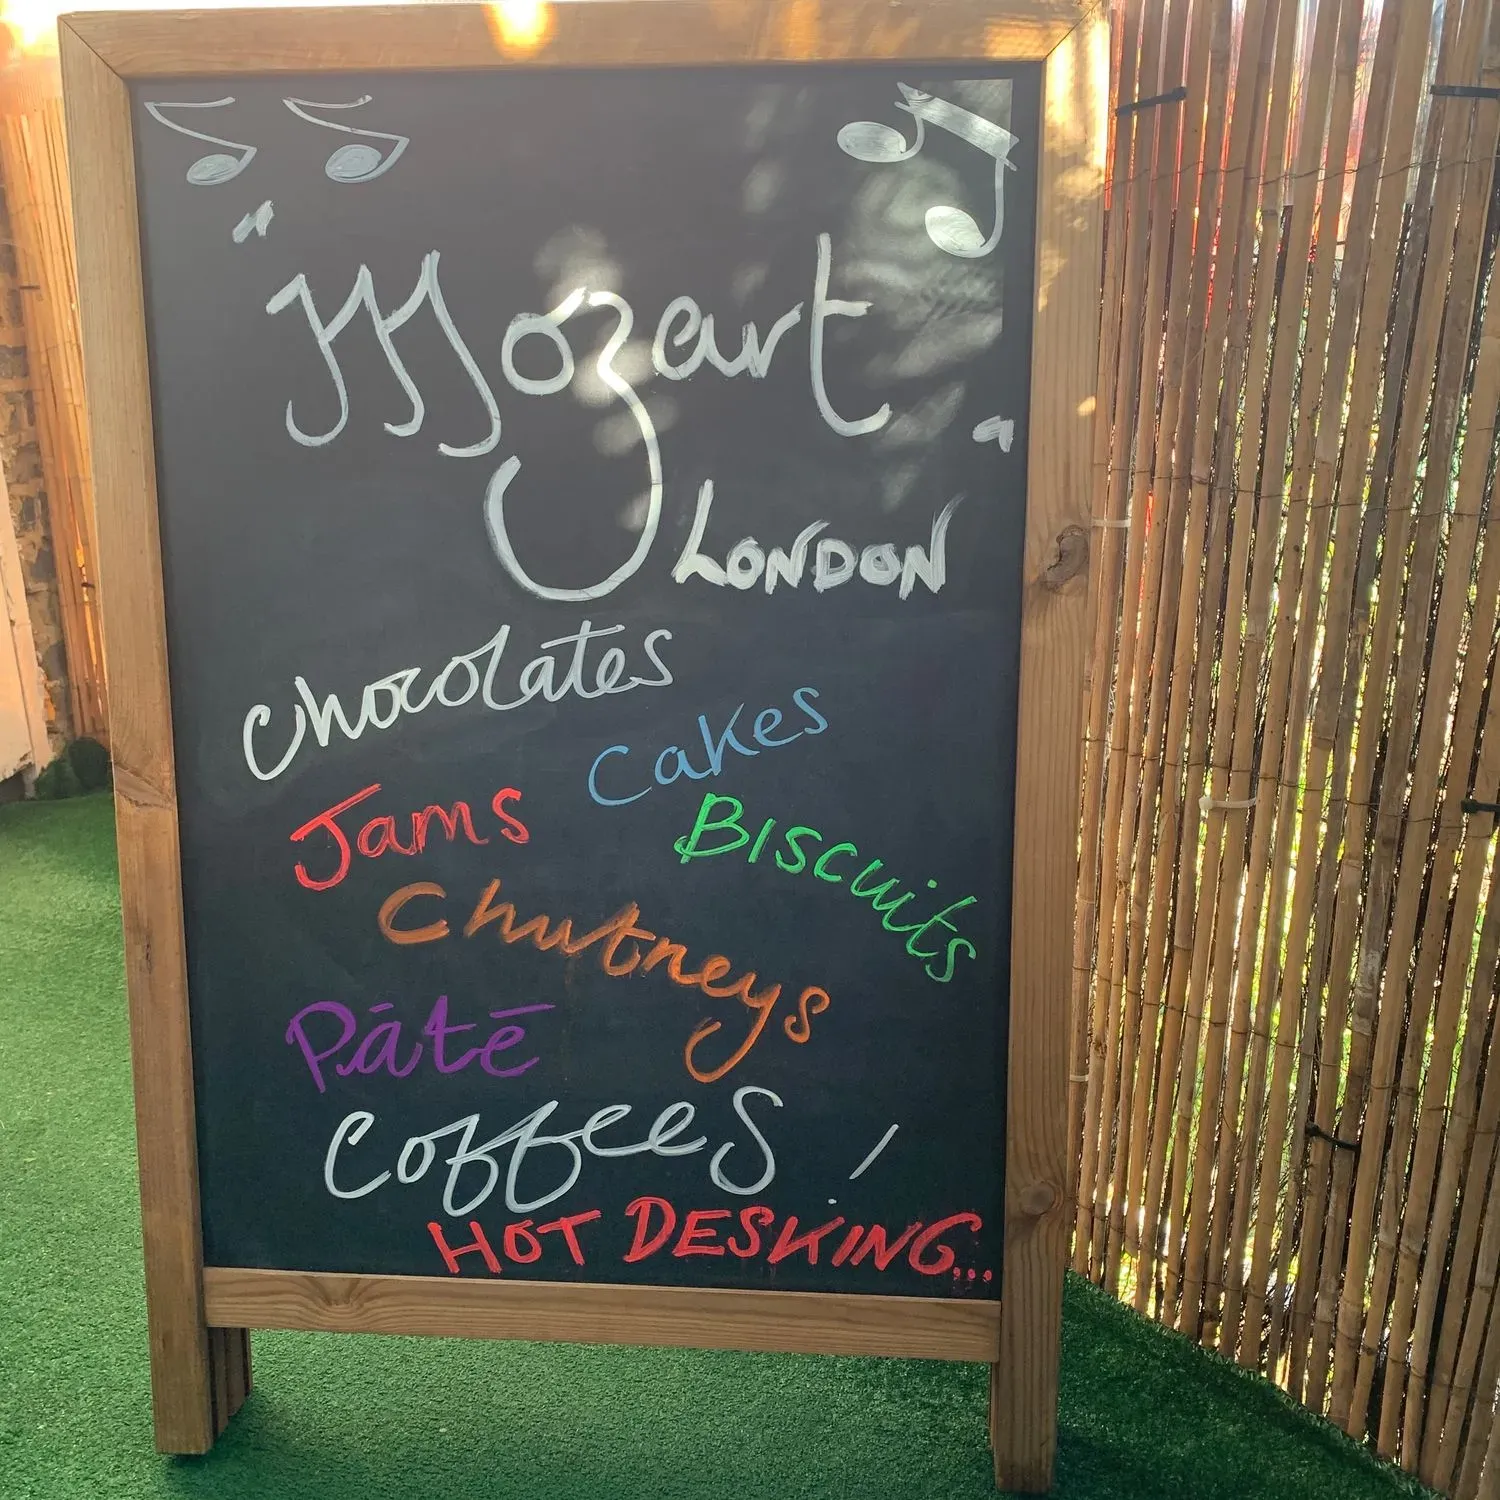 "Mozart"
LONDON
Chocolates
Cakes
Jams
Biscuits
Chutneys
Pātē
Coffees!
HOT DESKING...